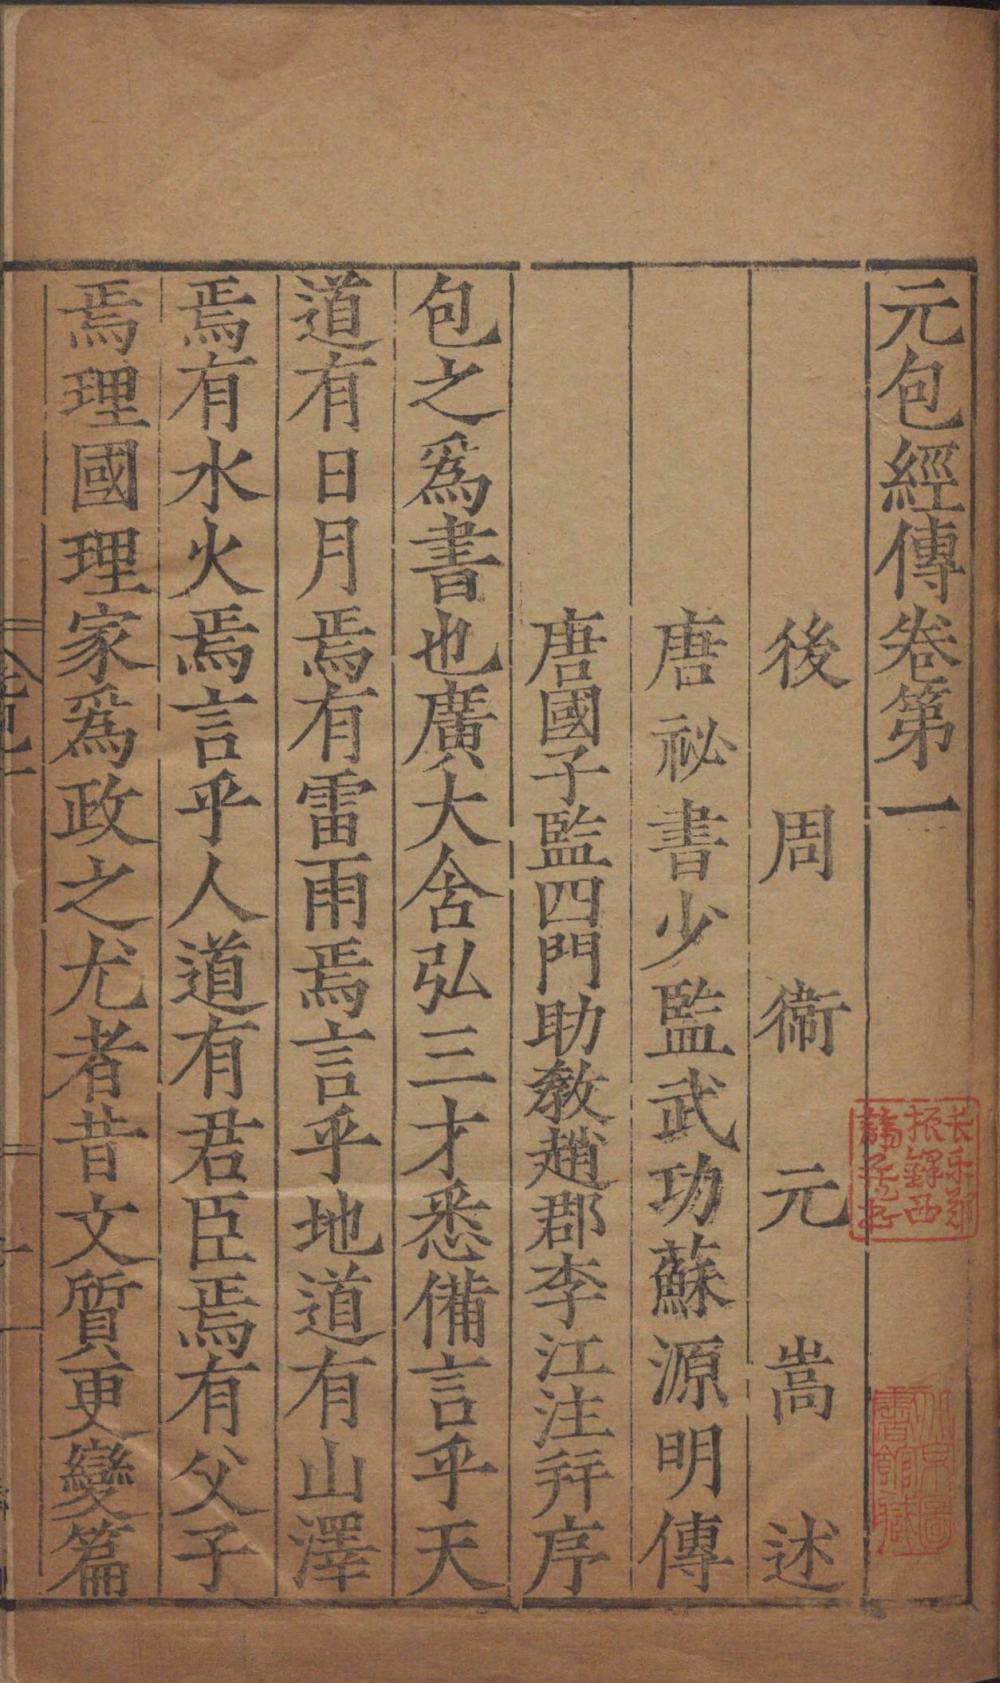 元包經傳卷第一
後周衞元嵩述
唐祕書少監武功蘇源明傳
唐國子監四門助教趙郡李江注幷序
包之爲書也廣大含弘三才悉備言乎天
道有日月焉有雷雨焉言乎地道有山澤
焉有水火焉言乎人道有君臣焉有父子
焉理國理家爲政之尤者昔文質更變篇
长乐郑
振铎西
諦藏书
北京圖
書館藏